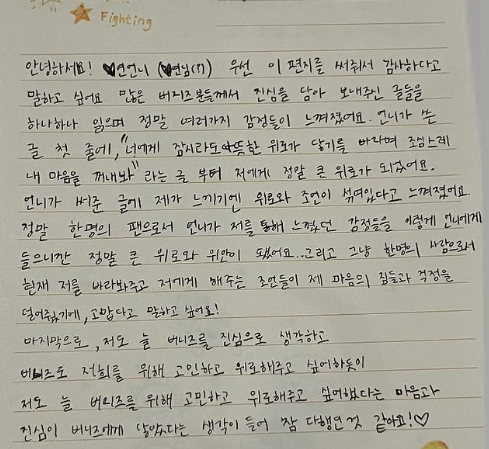 Fighting
안녕하세요! ♥연언니 (♥연님(?)) 우선 이 편지를 써줘서 감사하다고
말하고 싶어요 많은 버니즈분들께서 진심을 담아 보내주신 글들을
하나하나 읽으며 정말 여러가지 감정들이 느껴졌어요. 언니가 쓴
글 첫 줄에, "너에게 잠시라도 따뜻한 위로가 닿기를 바라며 조심스레
내 마음을 꺼내봐" 라는 글 부터 저에게 정말 큰 위로가 되었어요.
언니가 써준 글에 제가 느끼기엔 위로와 조언이 섞여있다고 느껴졌어요.
정말 한명의 팬으로서 언니가 저를 통해 느꼈던 감정들을 이렇게 언니에게
들으니깐 정말 큰 위로와 위안이 됬었어요...그리고 그냥 한명의 사람으로서
현재 저를 바라봐주고 저에게 해주는 조언들이 제 마음의 짐들과 걱정을
덜어주었기에, 고맙다고 말하고 싶어요!
마지막으로, 저도 늘 버니즈를 진심으로 생각하고
버니즈도 저희를 위해 고민하고 위로해주고 싶어하듯이
저도 늘 버니즈를 위해 고민하고 위로해주고 싶어했다는 마음과
진심이 버니즈에게 닿았다는 생각이 들어 참 다행인 것 같아요!♡